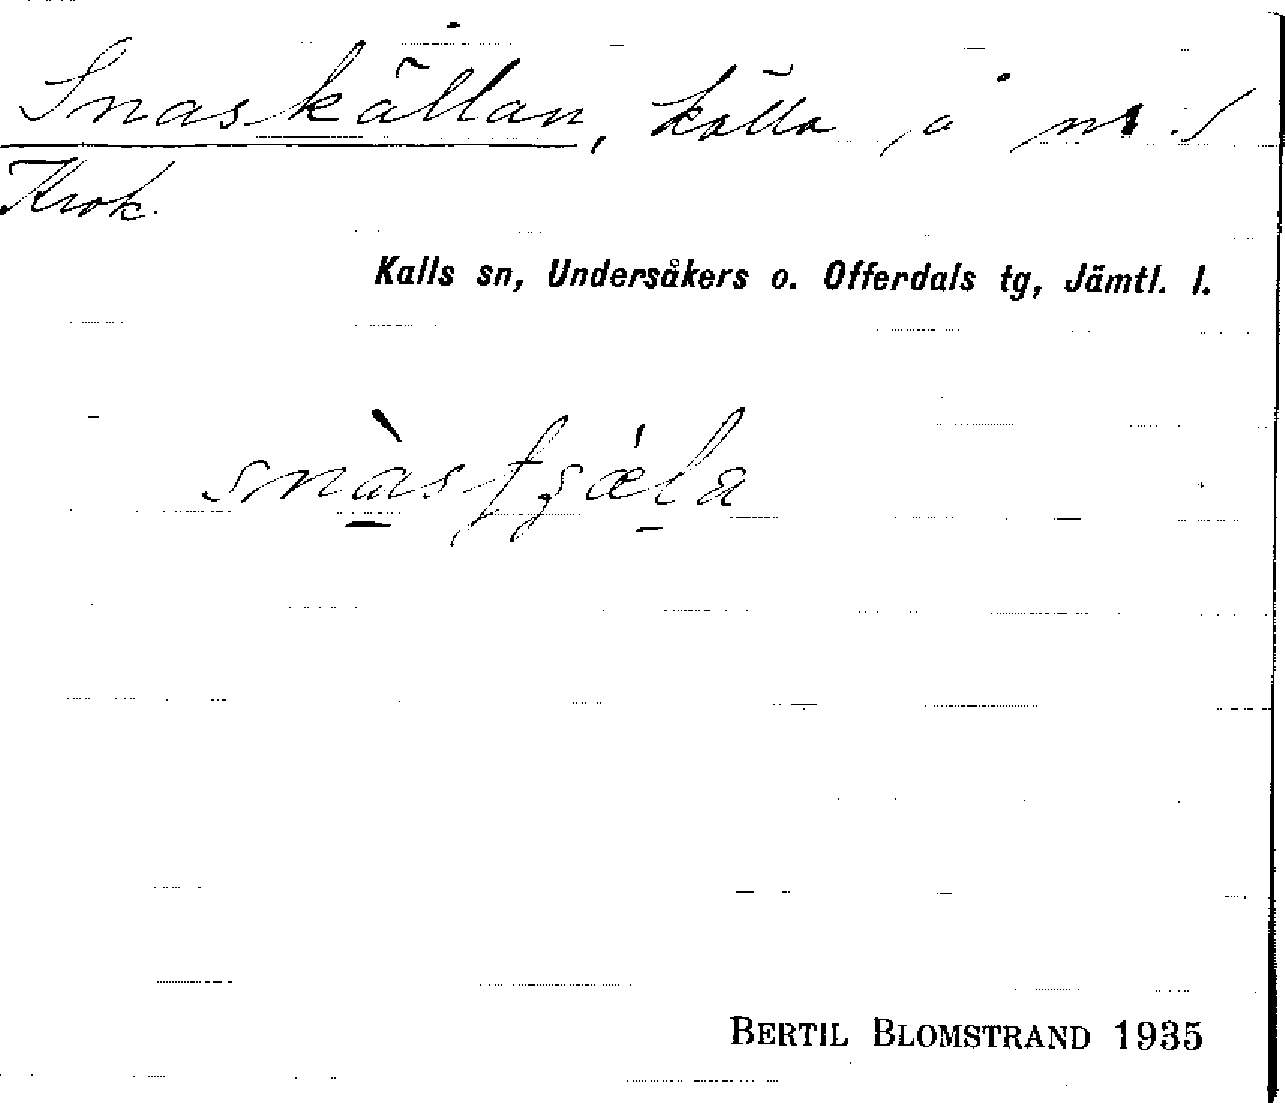 Snaskällan, källa på n
Krok.
Kalls sn, Undersåkers o. Offerdals tg, Jämtl. l.
BERTIL BLOMSTRAND 1935